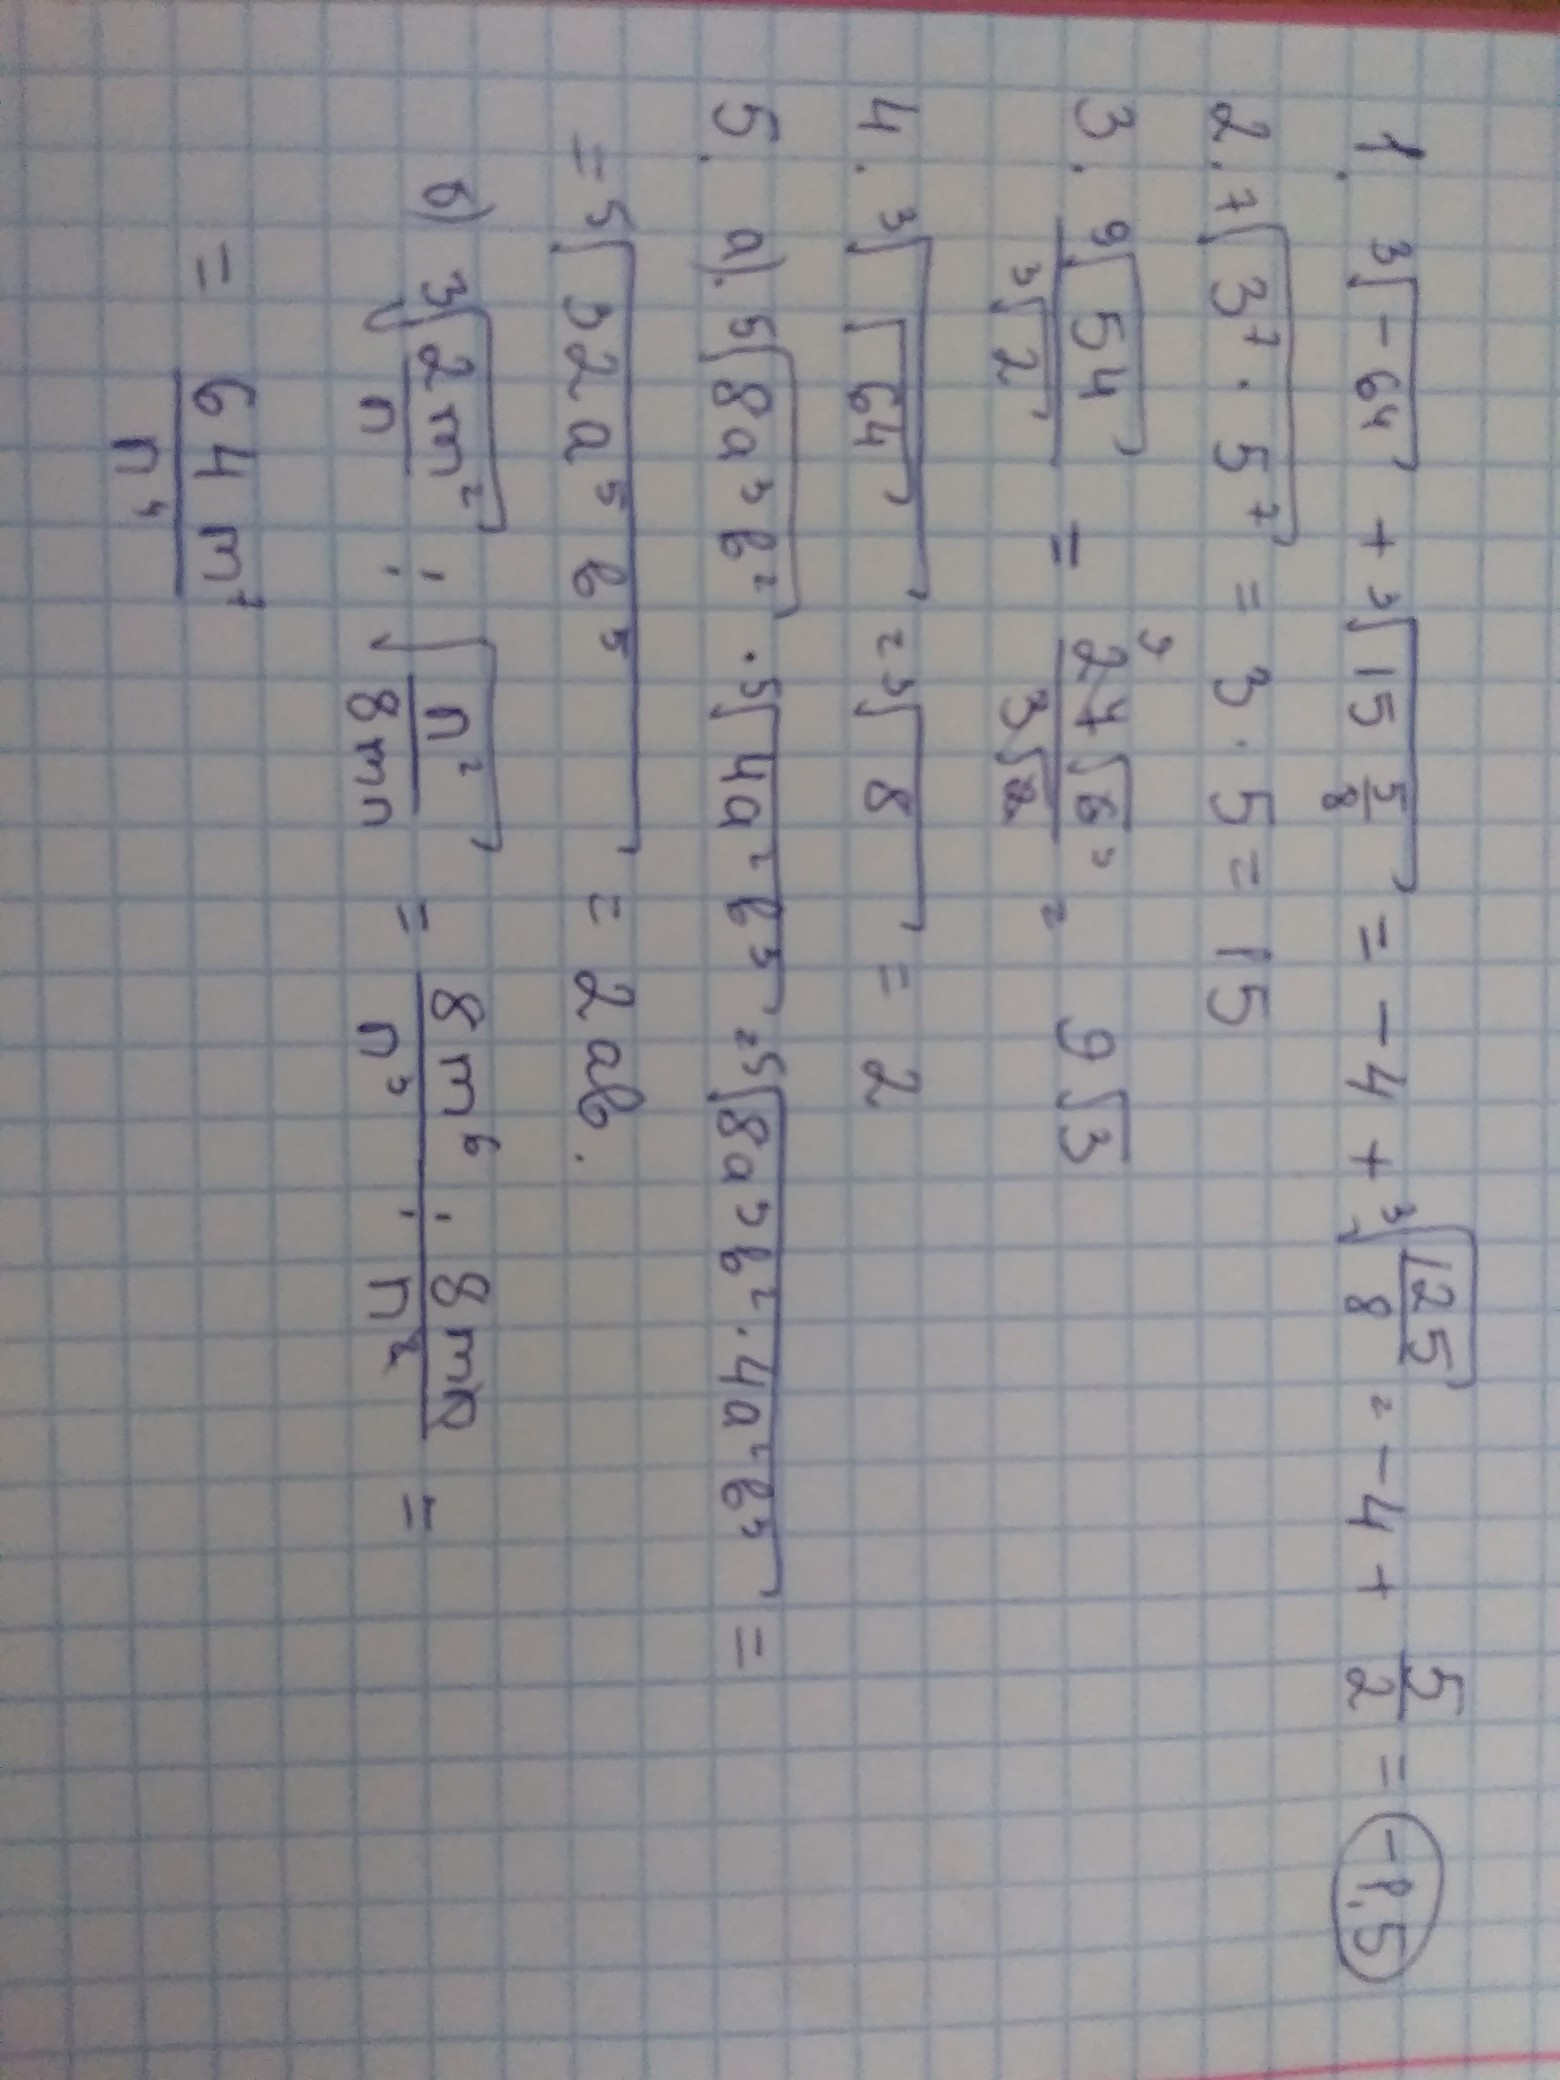 1. ∛-64 + ∛15 5/8 = -4 + ∛125/8 = -4 + 5/2 = -1,5
2. ⁷√3⁷ · 5⁷ = 3 · 5 = 15
3. ⁹√54 / ³√2 = 27√6 / 3√2 = 9√3
4. ³√√64 = ³√8 = 2
5. a). ⁵√8a³b² · ⁵√4a²b³ = ⁵√8a³b² · 4a²b³ =
= ⁵√32a⁵b⁵ = 2ab.
б) ³√2m²/n : √n²/8mn = 8m⁶/n³ : 8mn/n² =
= 64m⁷/n⁴